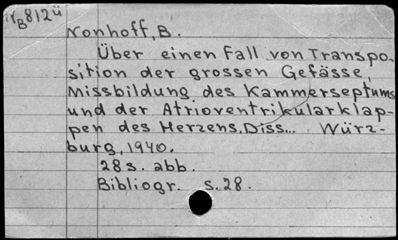 NB812ü
Nonhoff, B.
Über einen Fall von Transpo-
sition der grossen Gefässe,
Missbildung des Kammerseptums
und der Atrioventrikularklap-
pen des Herzens. Diss... Würz-
burg, 1940.
28 s. abb.
Bibliogr. s. 28.